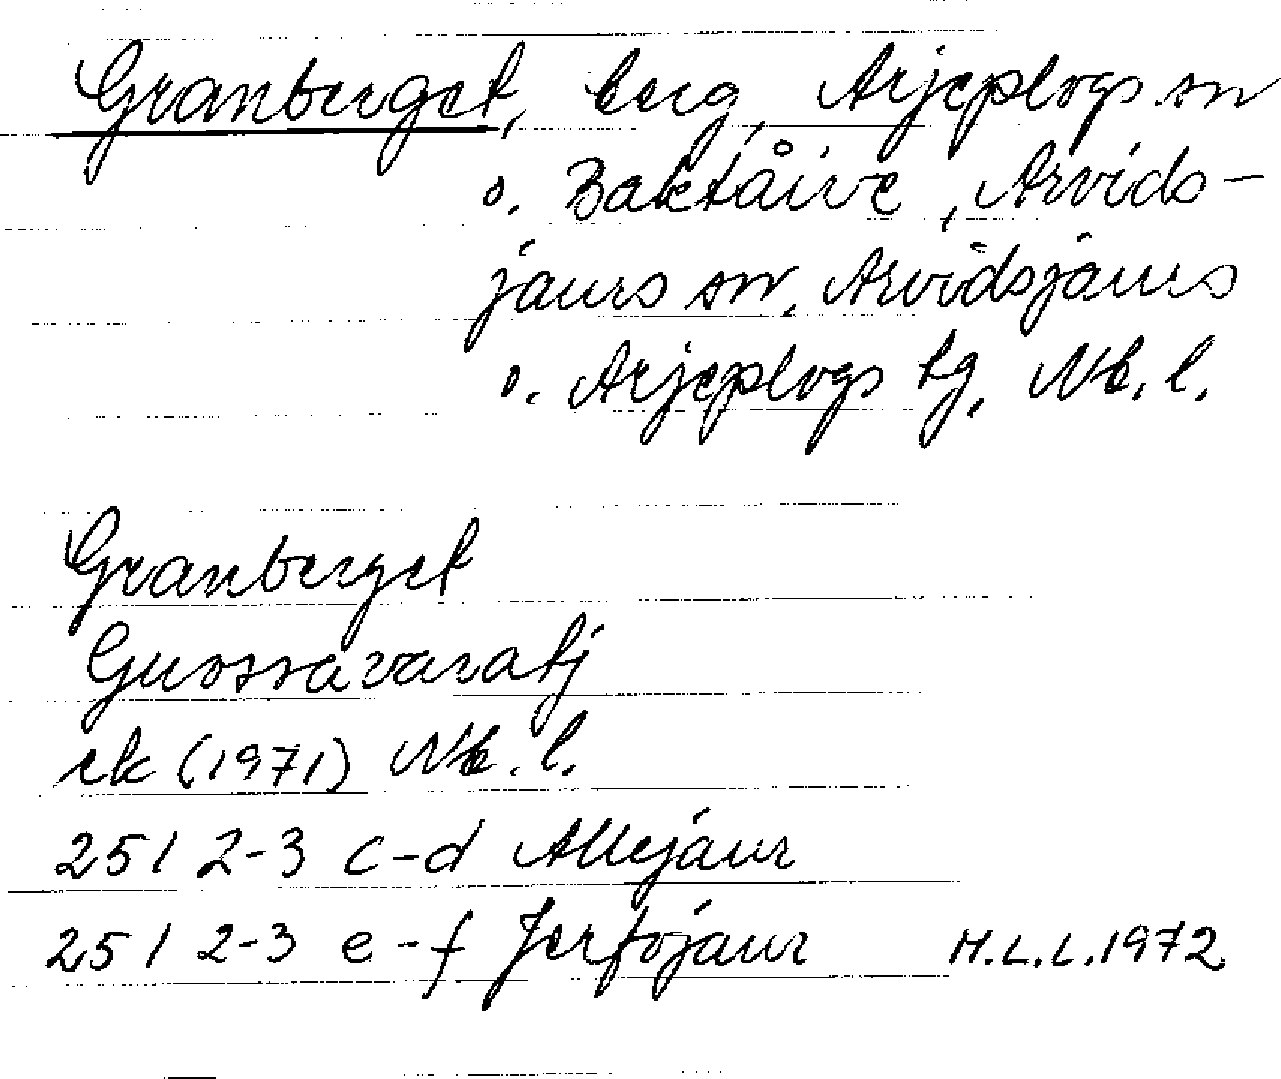 Granberget, berg, Arjeplogs sn
o. Baktåive, Arvids-
jaurs sn, Arvidsjaurs
o. Arjeplogs tg, Nb. l.
Granberget
Guossavaratj
ek (1971) Nb. l.
25 I 2-3 c-d Allejaur
25 I 2-3 e-f Jerfojaur H.L.L. 1972